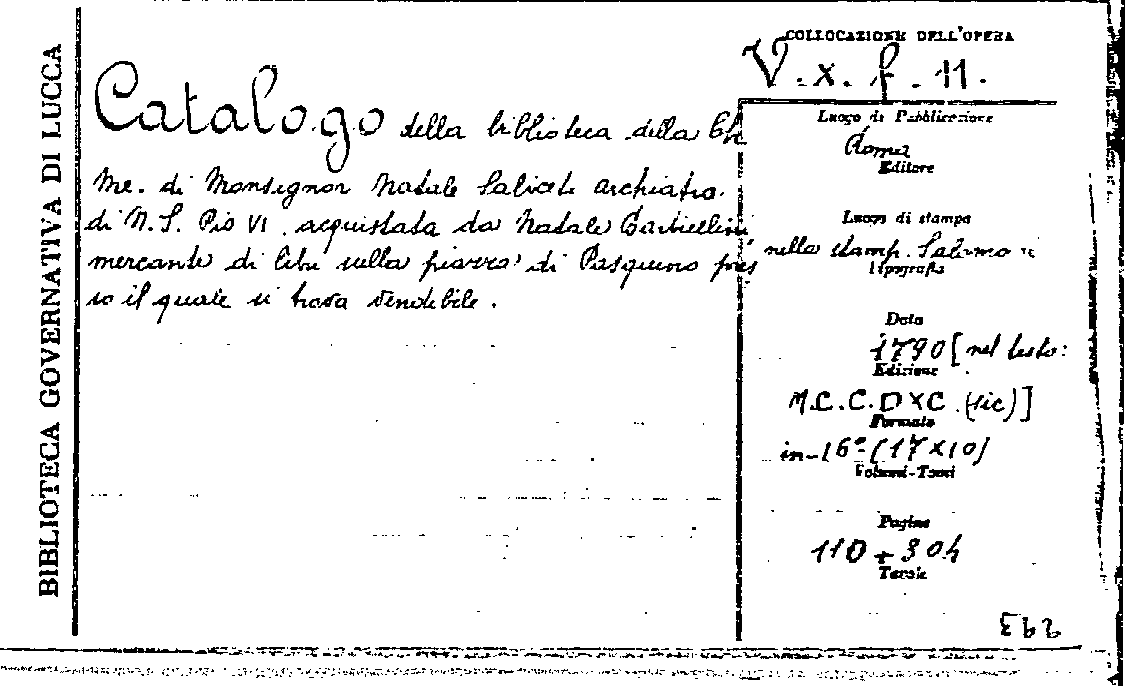 BIBLIOTECA GOVERNATIVA DI LUCCA
Catalogo della biblioteca della Ch.
Me. di Monsignor Natale Saliceti archiatro
di N. S. Pio VI. acquistata da Natale Barbiellini
mercante di libri sulla piazza di Pasquino pres
so il quale si trova vendibile.
COLLOCAZIONE DELL'OPERA
V. x. f. 11.
Luogo di Pubblicazione
Roma
Editore
Luogo di stampa
nella stamp. Salomoni
Tipografia
Data
1790 [nel testo:
Edizione
M.C.C.DXC. (sic)]
Formato
in-16° (17x10)
Volumi-Tomi
Pagine
110 + 304
Tavole